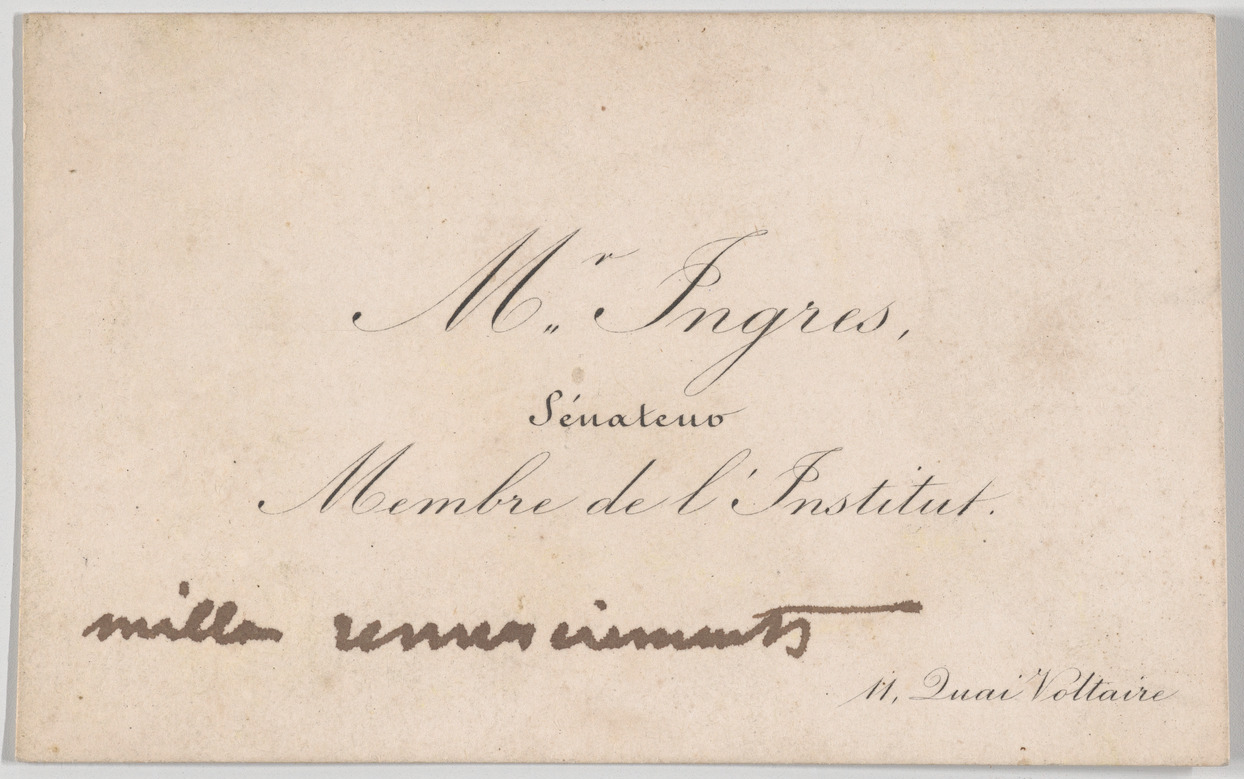 Mr Ingres,
Sénateur
Membre de l'Institut.
mille remerciements
11, Quai Voltaire